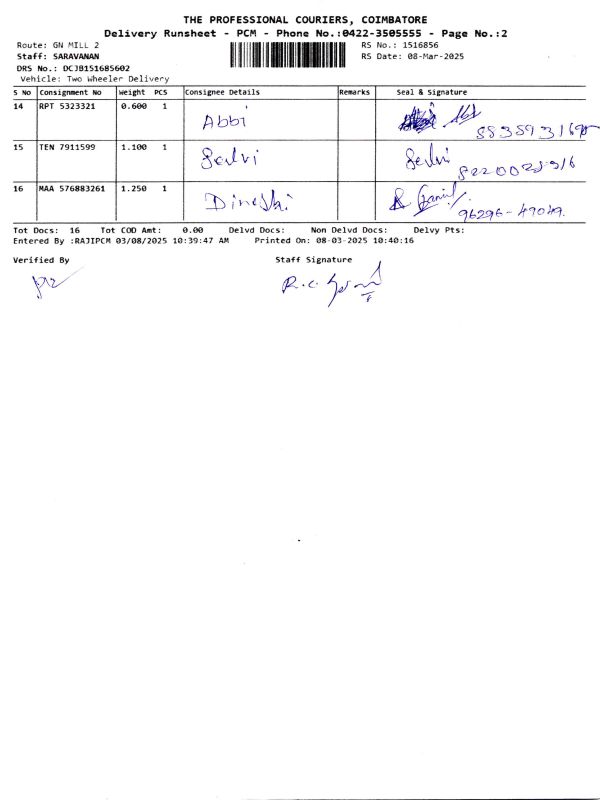 THE PROFESSIONAL COURIERS, COIMBATORE
Delivery Runsheet - PCM - Phone No.:0422-3505555 - Page No.:2
Route: GN MILL 2 RS No.: 1516856
Staff: SARAVANAN RS Date: 08-Mar-2025
DRS No.: DCJB151685602
Vehicle: Two Wheeler Delivery
S No Consignment No Weight PCS Consignee Details Remarks Seal & Signature
14 RPT 5323321 0.600 1 Abbi
15 TEN 7911599 1.100 1 Selvi Selvi
16 MAA 576883261 1.250 1 Dineshi
96296-49049.
Tot Docs: 16 Tot COD Amt: 0.00 Delvd Docs: Non Delvd Docs: Delvy Pts:
Entered By :RAJIPCM 03/08/2025 10:39:47 AM Printed On: 08-03-2025 10:40:16
Verified By Staff Signature